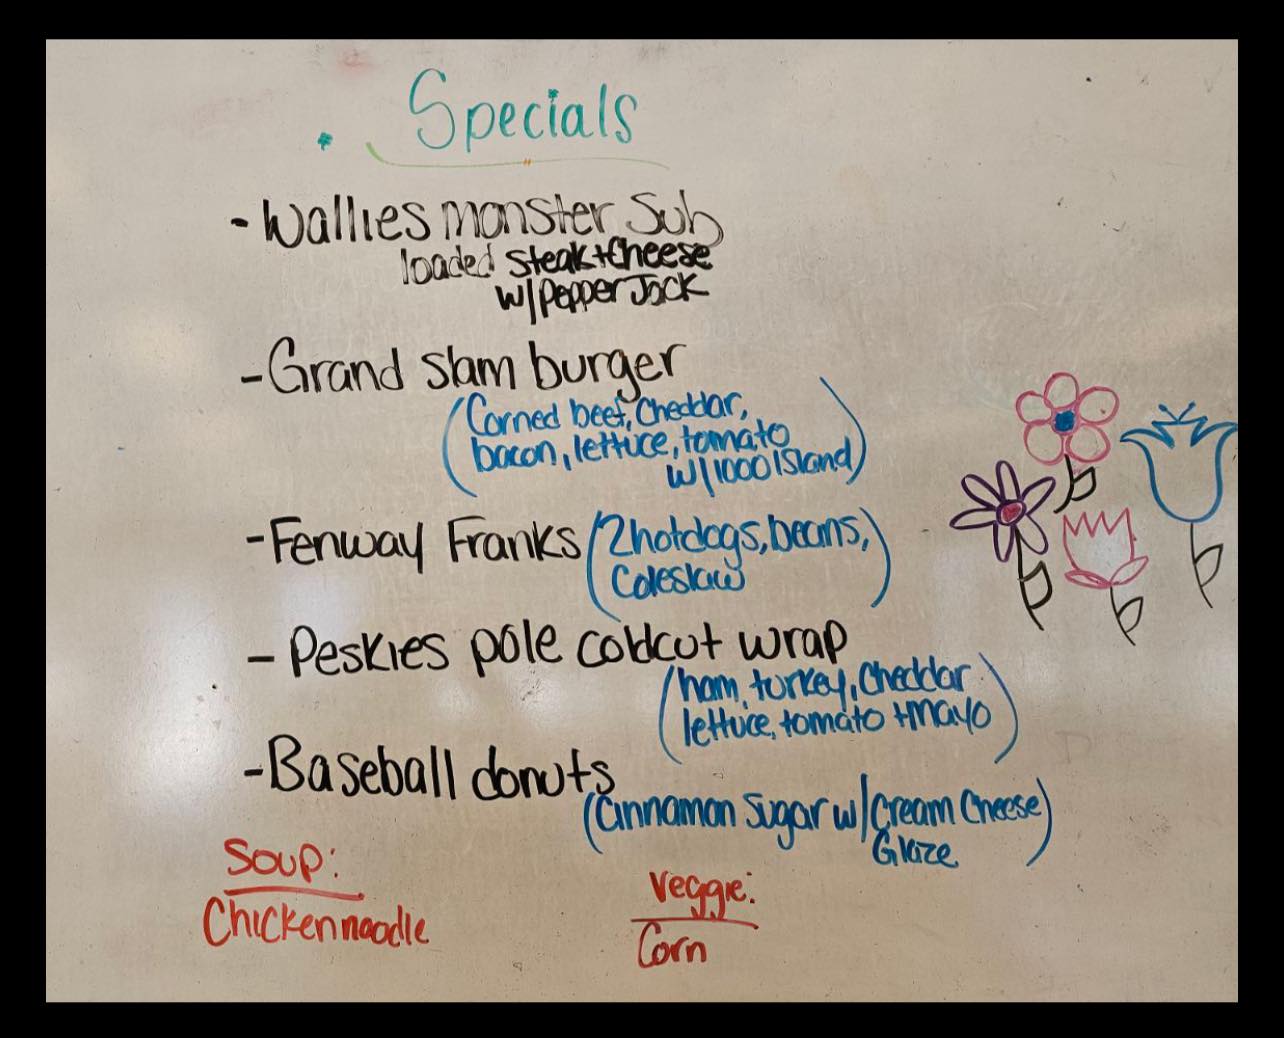 Specials
- Wallies monster Sub
loaded steak + Cheese
w/ Pepper Jack
- Grand slam burger
(Corned beef, Cheddar,
bacon, lettuce, tomato
w/ 1000 Island)
- Fenway Franks (2 hotdogs, beans,
Coleslaw)
- Peskies pole coldcut wrap
(ham, turkey, Cheddar
lettuce, tomato + mayo)
- Baseball donuts
(Cinnamon Sugar w/ Cream Cheese)
Glaze
Soup:
Chicken noodle
Veggie:
Corn